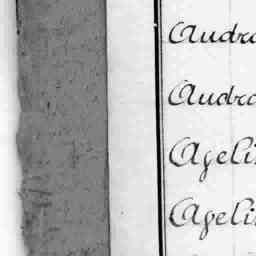 Audra
Audra
Ageli
Ageli